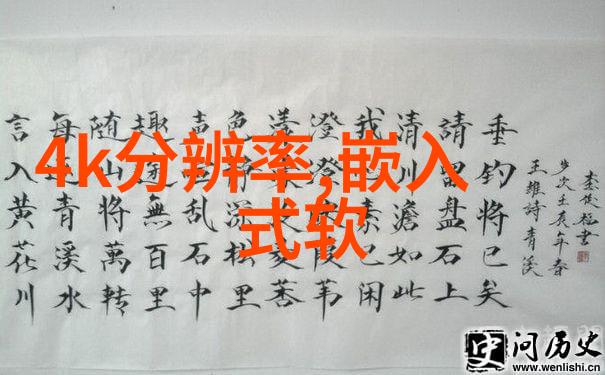 4k分辨率,嵌入
式软
言入黄花川
每青溪水
随山将萬转
趣途無百里
声乱石中
色静深松里
漾
澄澄葭苇
我素已闲
清川澹如此
請留盘石上
垂钓将已矣
王維詩青溪
岁次壬辰年春
書
问历史
www.wenlishi.cn